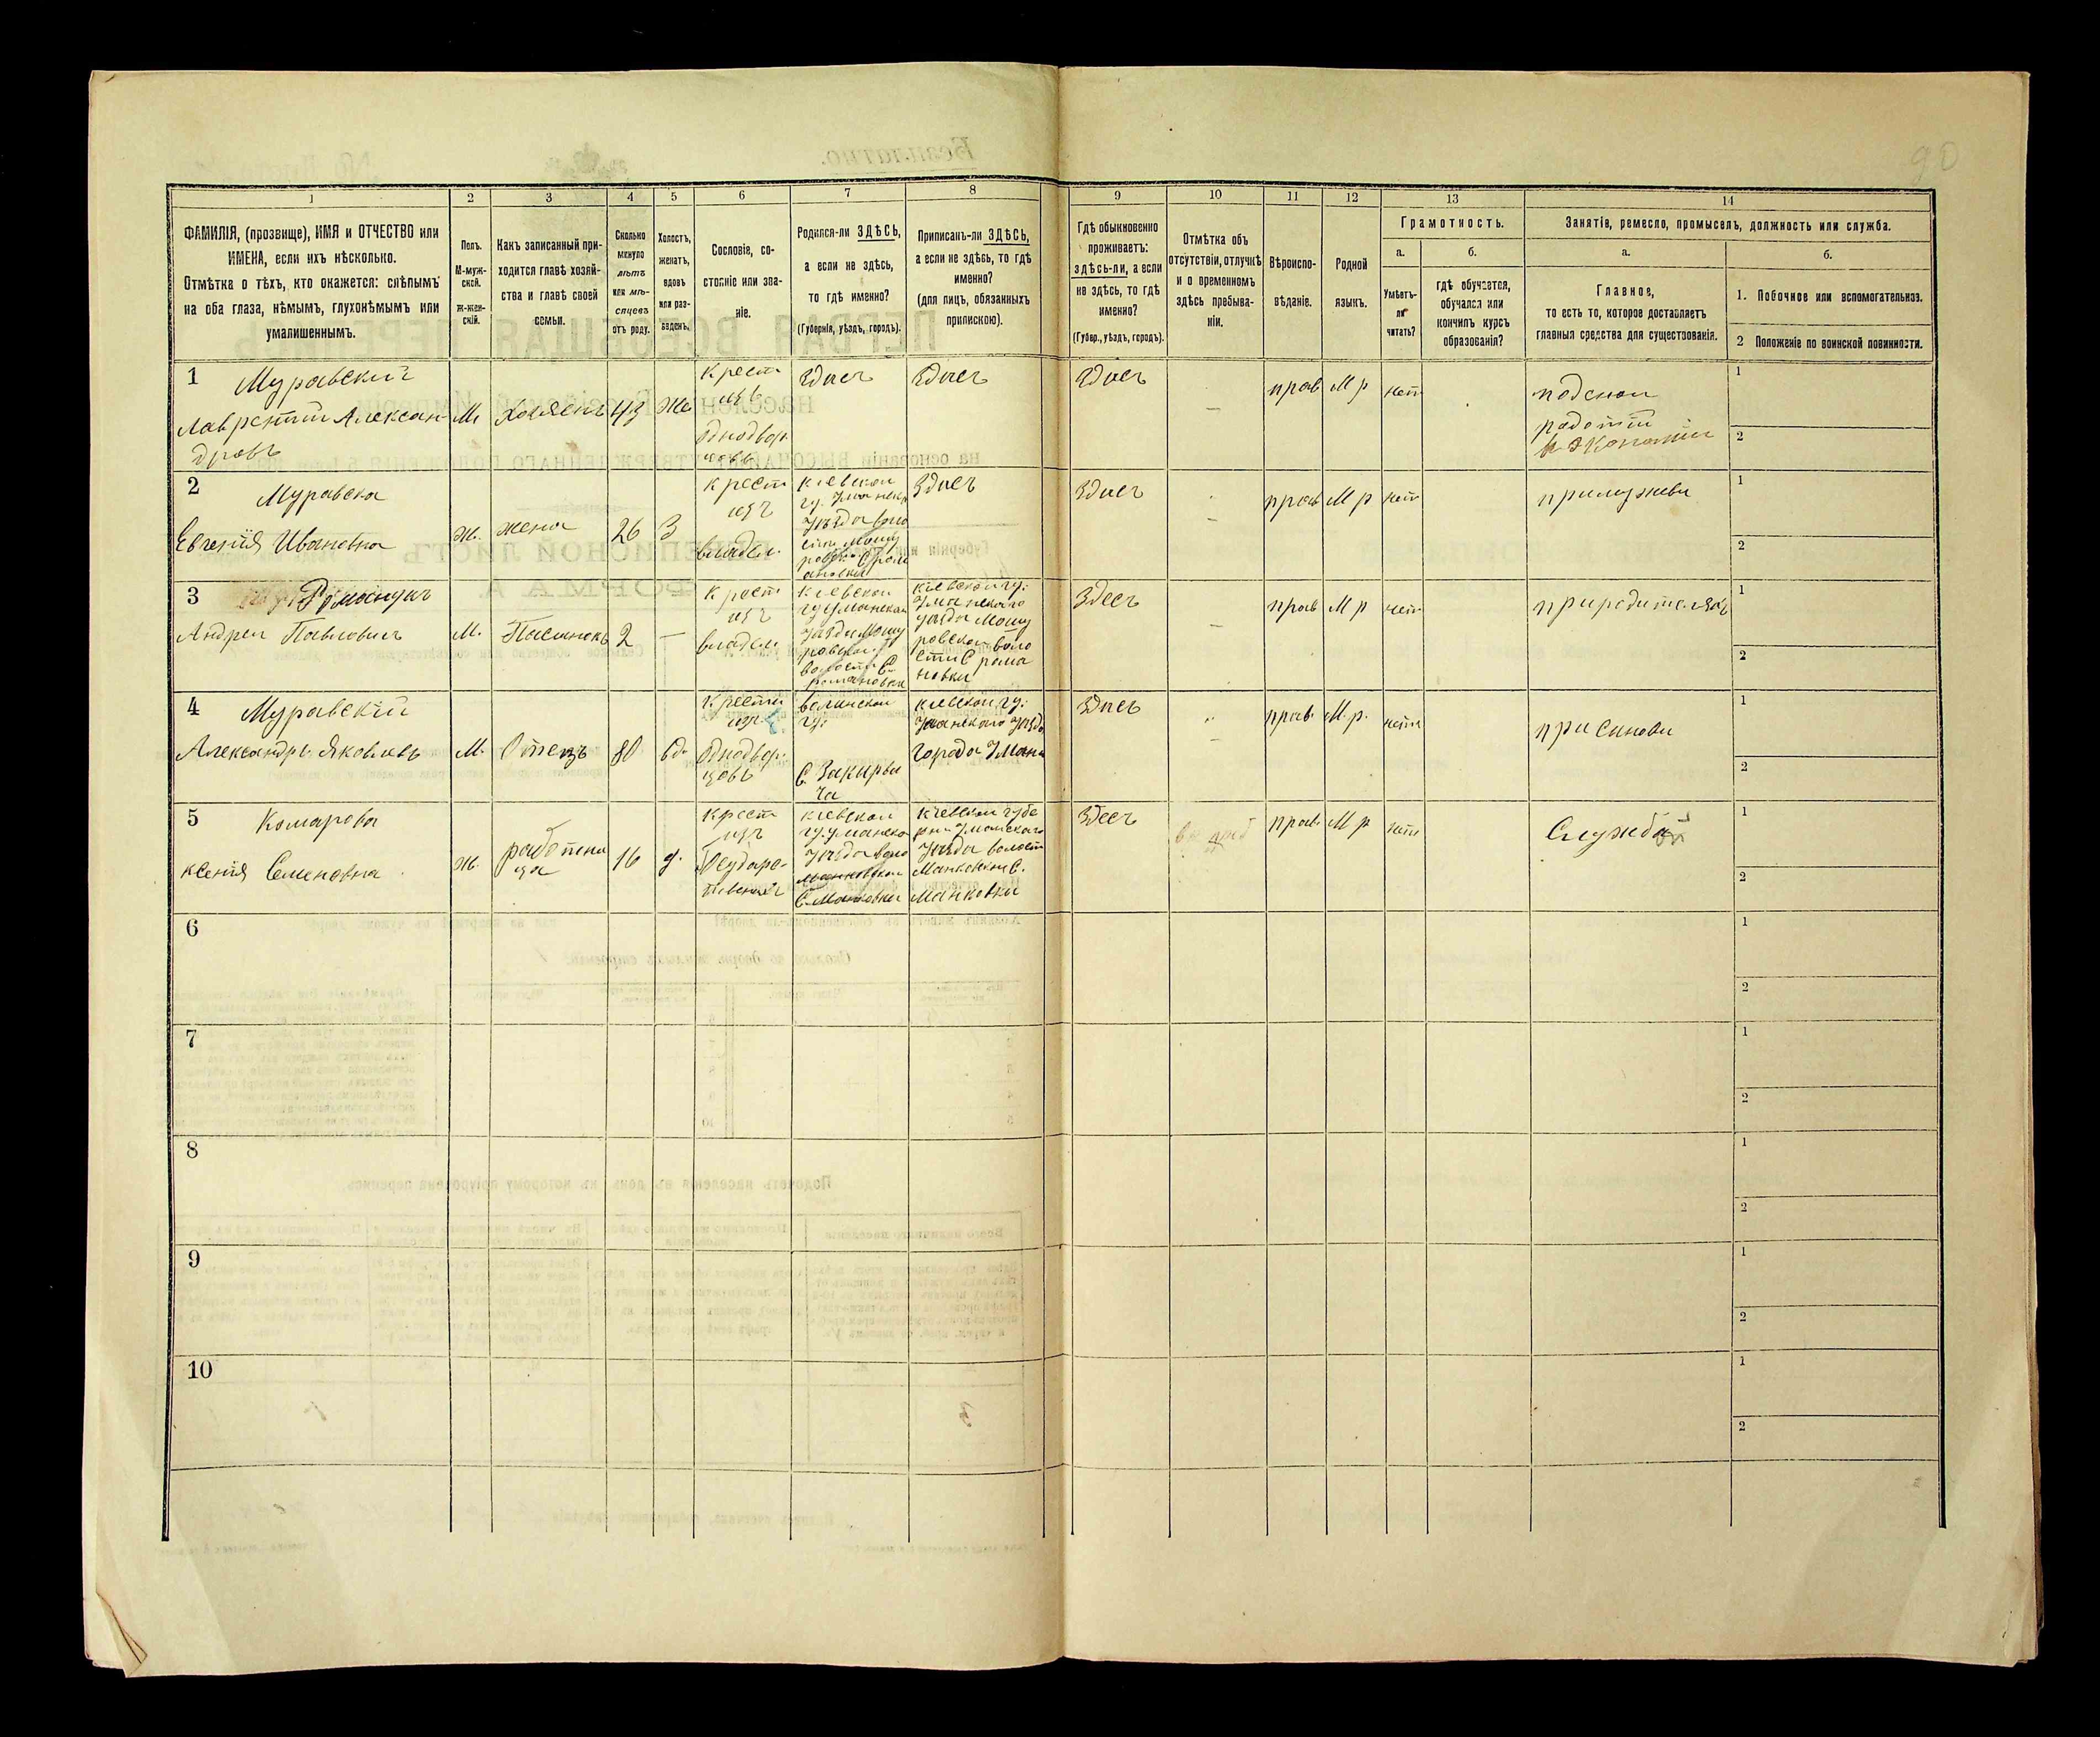 90
1
2
3
4
5
6
7
8
9
10
11
12
13
14
ФАМИЛІЯ, (прозвище), ИМЯ и ОТЧЕСТВО или
ИМЕНА, если ихъ нѣсколько.
Отмѣтка о тѣхъ, кто окажется: слѣпымъ
на оба глаза, нѣмымъ, глухонѣмымъ или
умалишеннымъ.
Полъ.
М-муж-
ской.
Ж-жен-
скій.
Какъ записанный при-
ходится главѣ хозяй-
ства и главѣ своей
семьи.
Сколько
минуло
лѣтъ
или мѣ-
сяцевъ
отъ роду.
Холостъ,
женатъ,
вдовъ
или раз-
веденъ.
Сословіе, со-
стояніе или зва-
ніе.
Родился-ли ЗДѢСЬ,
а если не здѣсь,
то гдѣ именно?
(Губернія, уѣздъ, городъ).
Приписанъ-ли ЗДѢСЬ,
а если не здѣсь, то гдѣ
именно?
(для лицъ, обязанныхъ
припискою).
Гдѣ обыкновенно
проживаетъ:
ЗДѢСЬ-ли, а если
не здѣсь, то гдѣ
именно?
(Губер., уѣздъ, городъ).
Отмѣтка объ
отсутствіи, отлучкѣ
и о временномъ
здѣсь пребыва-
ніи.
Вѣроиспо-
вѣданіе.
Родной
языкъ.
Грамотность.
а.
Умѣетъ-
ли
читать?
б.
гдѣ обучается,
обучался или
кончилъ курсъ
образованія?
Занятіе, ремесло, промыселъ, должность или служба.
а.
Главное,
то есть то, которое доставляетъ
главныя средства для существованія.
б.
1. Побочное или вспомогательное.
2 Положеніе по воинской повинности.
1
Муравский
Лаврентий Алексан-
дровъ
М.
Хозяенъ
43
Же
Крести
изъ
Однодвор
цовъ
Здисъ
Здисъ
Здисъ
прав
М р
нет
подснои
работи
в Экономии
1
2
2
Муравска
Евгенія Ивановна
Ж.
жена
26
З
Крест
изъ
владел.
киевскои
Здисъ
Здисъ
прав
М р
нет
примужеви
1
2
3
Романукъ
Андреи Павловичъ
М.
Пасинокъ
2
—
Крест
изъ
владел.
киевскои
гу Уманскаи
уезда Мошу
ровскои
волости С.
романовки
киевскои гу:
Уманскаго
уезда Мошу
ровскои воло
сти С рома
новки
Здесъ
прав
М р
нет
природителяхъ
1
2
4
Муравский
Александръ Яковлевъ
М.
Отецъ
80
вд.
Крести
изъ
Однодвор.
цовъ
волинскои
гу:
киевскои гу:
Уманскаго уезда
города Умани
Здисъ
прав.
М. р.
нетъ
при синови
1
2
5
Комарова
ксения Семеновна
Ж.
работни
ца
16
д.
Крест
изъ
киевскои
гу. уманско
уезда воло
манковскои
С. Манковки
киевскои губе
рни Уманскаго
уезда волости
Манковкои С.
Манковки
Здесъ
прав.
М р
нет
Служба
1
2
6
1
2
7
1
2
8
1
2
9
1
2
10
1
2